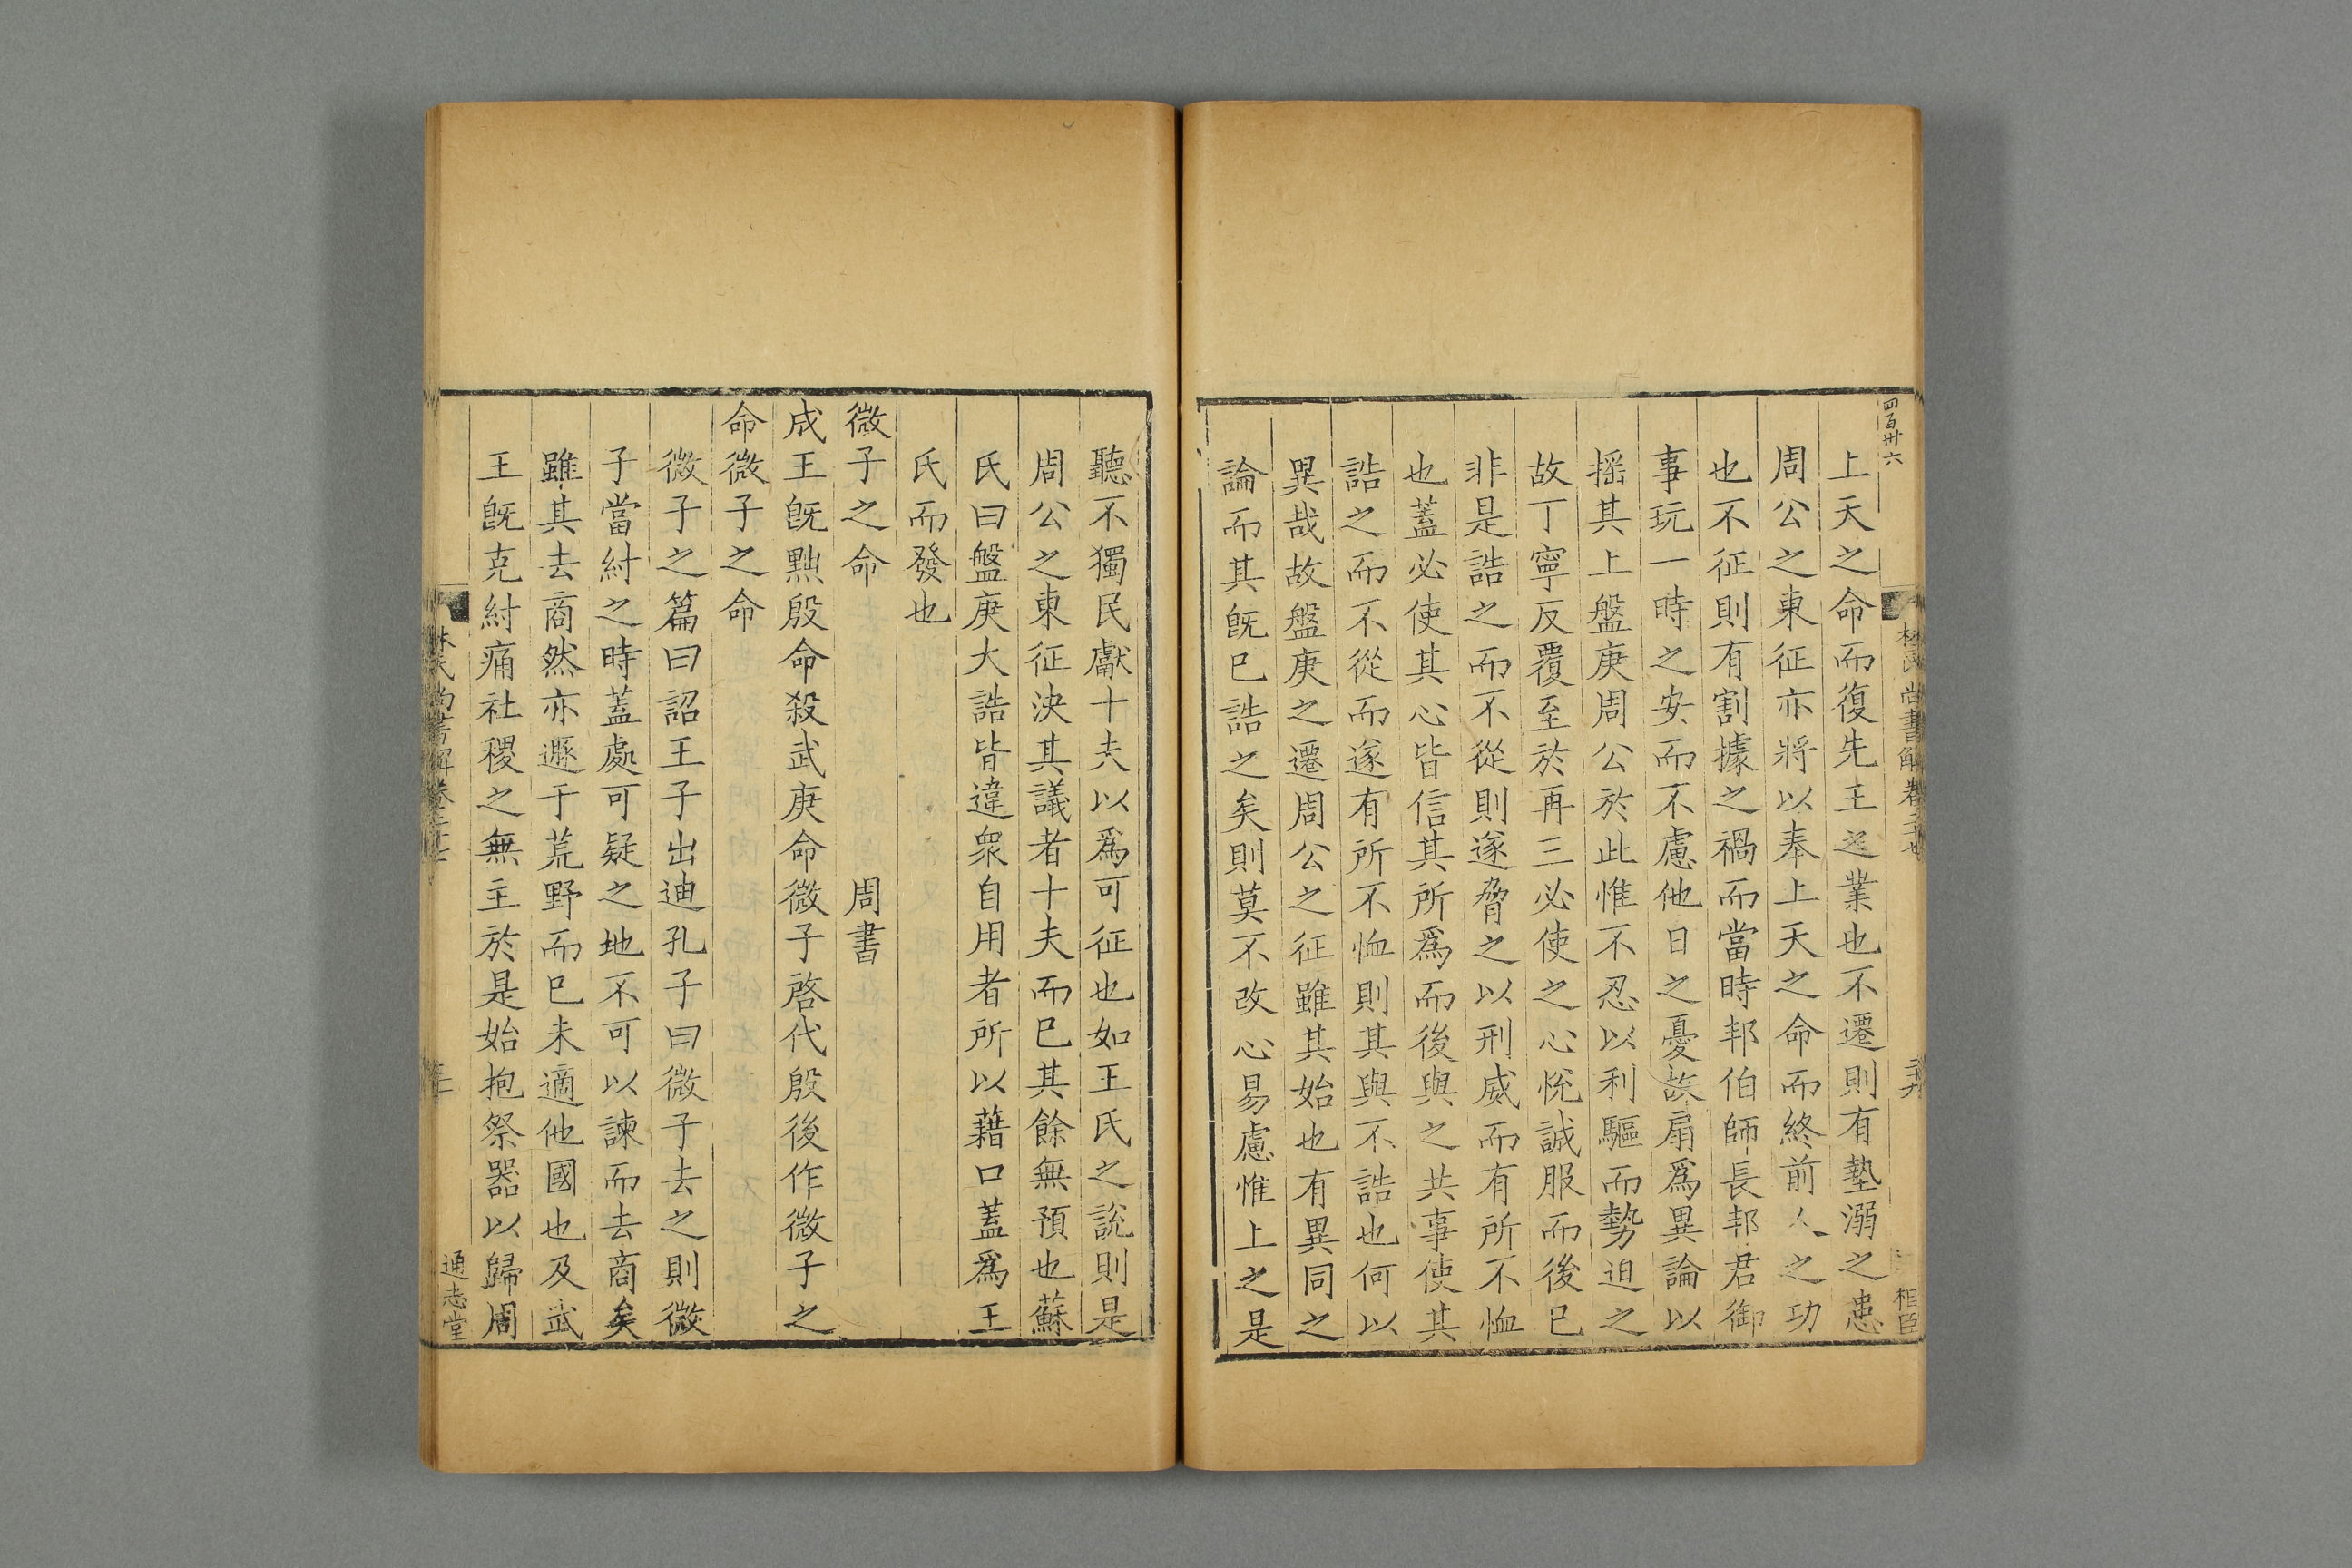 四百卅六
上天之命而復先王之業也不遷則有墊溺之患
周公之東征亦將以奉上天之命而終前人之功
也不征則有割據之禍而當時邦伯師長邦君御
事玩一時之安而不慮他日之憂故扇爲異論以
搖其上盤庚周公於此惟不忍以利驅而勢迫之
故丁寧反覆至於再三必使之心悅誠服而後已
非是誥之而不從則遂脅之以刑威而有所不恤
也蓋必使其心皆信其所爲而後與之共事使其
誥之而不從而遂有所不恤則其與不誥也何以
異哉故盤庚之遷周公之征雖其始也有異同之
論而其旣已誥之矣則莫不改心易慮惟上之是
林氏尚書解卷二十七
二九
相臣
聽不獨民獻十夫以爲可征也如王氏之說則是
周公之東征決其議者十夫而已其餘無預也蘇
氏曰盤庚大誥皆違衆自用者所以藉口蓋爲王
氏而發也
微子之命 周書
成王旣黜殷命殺武庚命微子啓代殷後作微子之
命微子之命
微子之篇曰詔王子出迪孔子曰微子去之則微
子當紂之時蓋處可疑之地不可以諫而去商矣
雖其去商然亦遯于荒野而已未適他國也及武
王旣克紂痛社稷之無主於是始抱祭器以歸周
林氏尚書解卷二十七
三十
通志堂